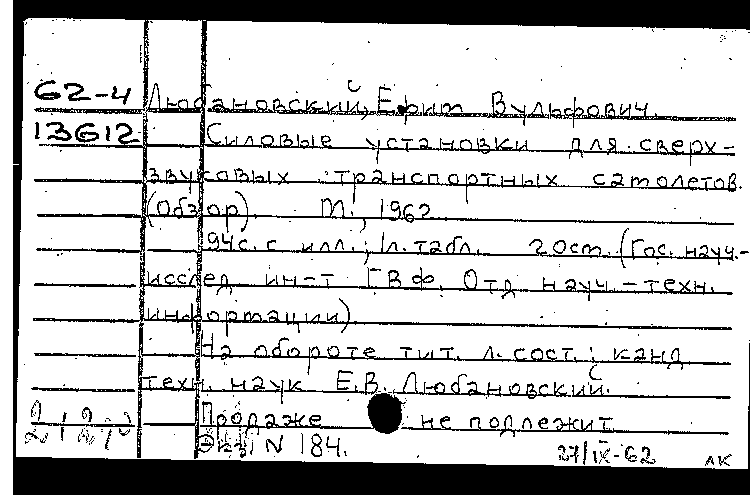 62-4 Любановский, Ефим Вульфович.
13612 Силовые установки для сверх-
звуковых транспортных самолетов.
(Обзор). М., 1962
94с. с илл.; 1л. табл. 20см. (Гос. науч.-
исслед. ин-т ГВФ. Отд. науч.-техн.
информации).
На обороте тит. л. сост.: канд.
техн. наук Е.В. Любановский.
Продаже не подлежит
Экз. N 184.
27/IX-62 АК